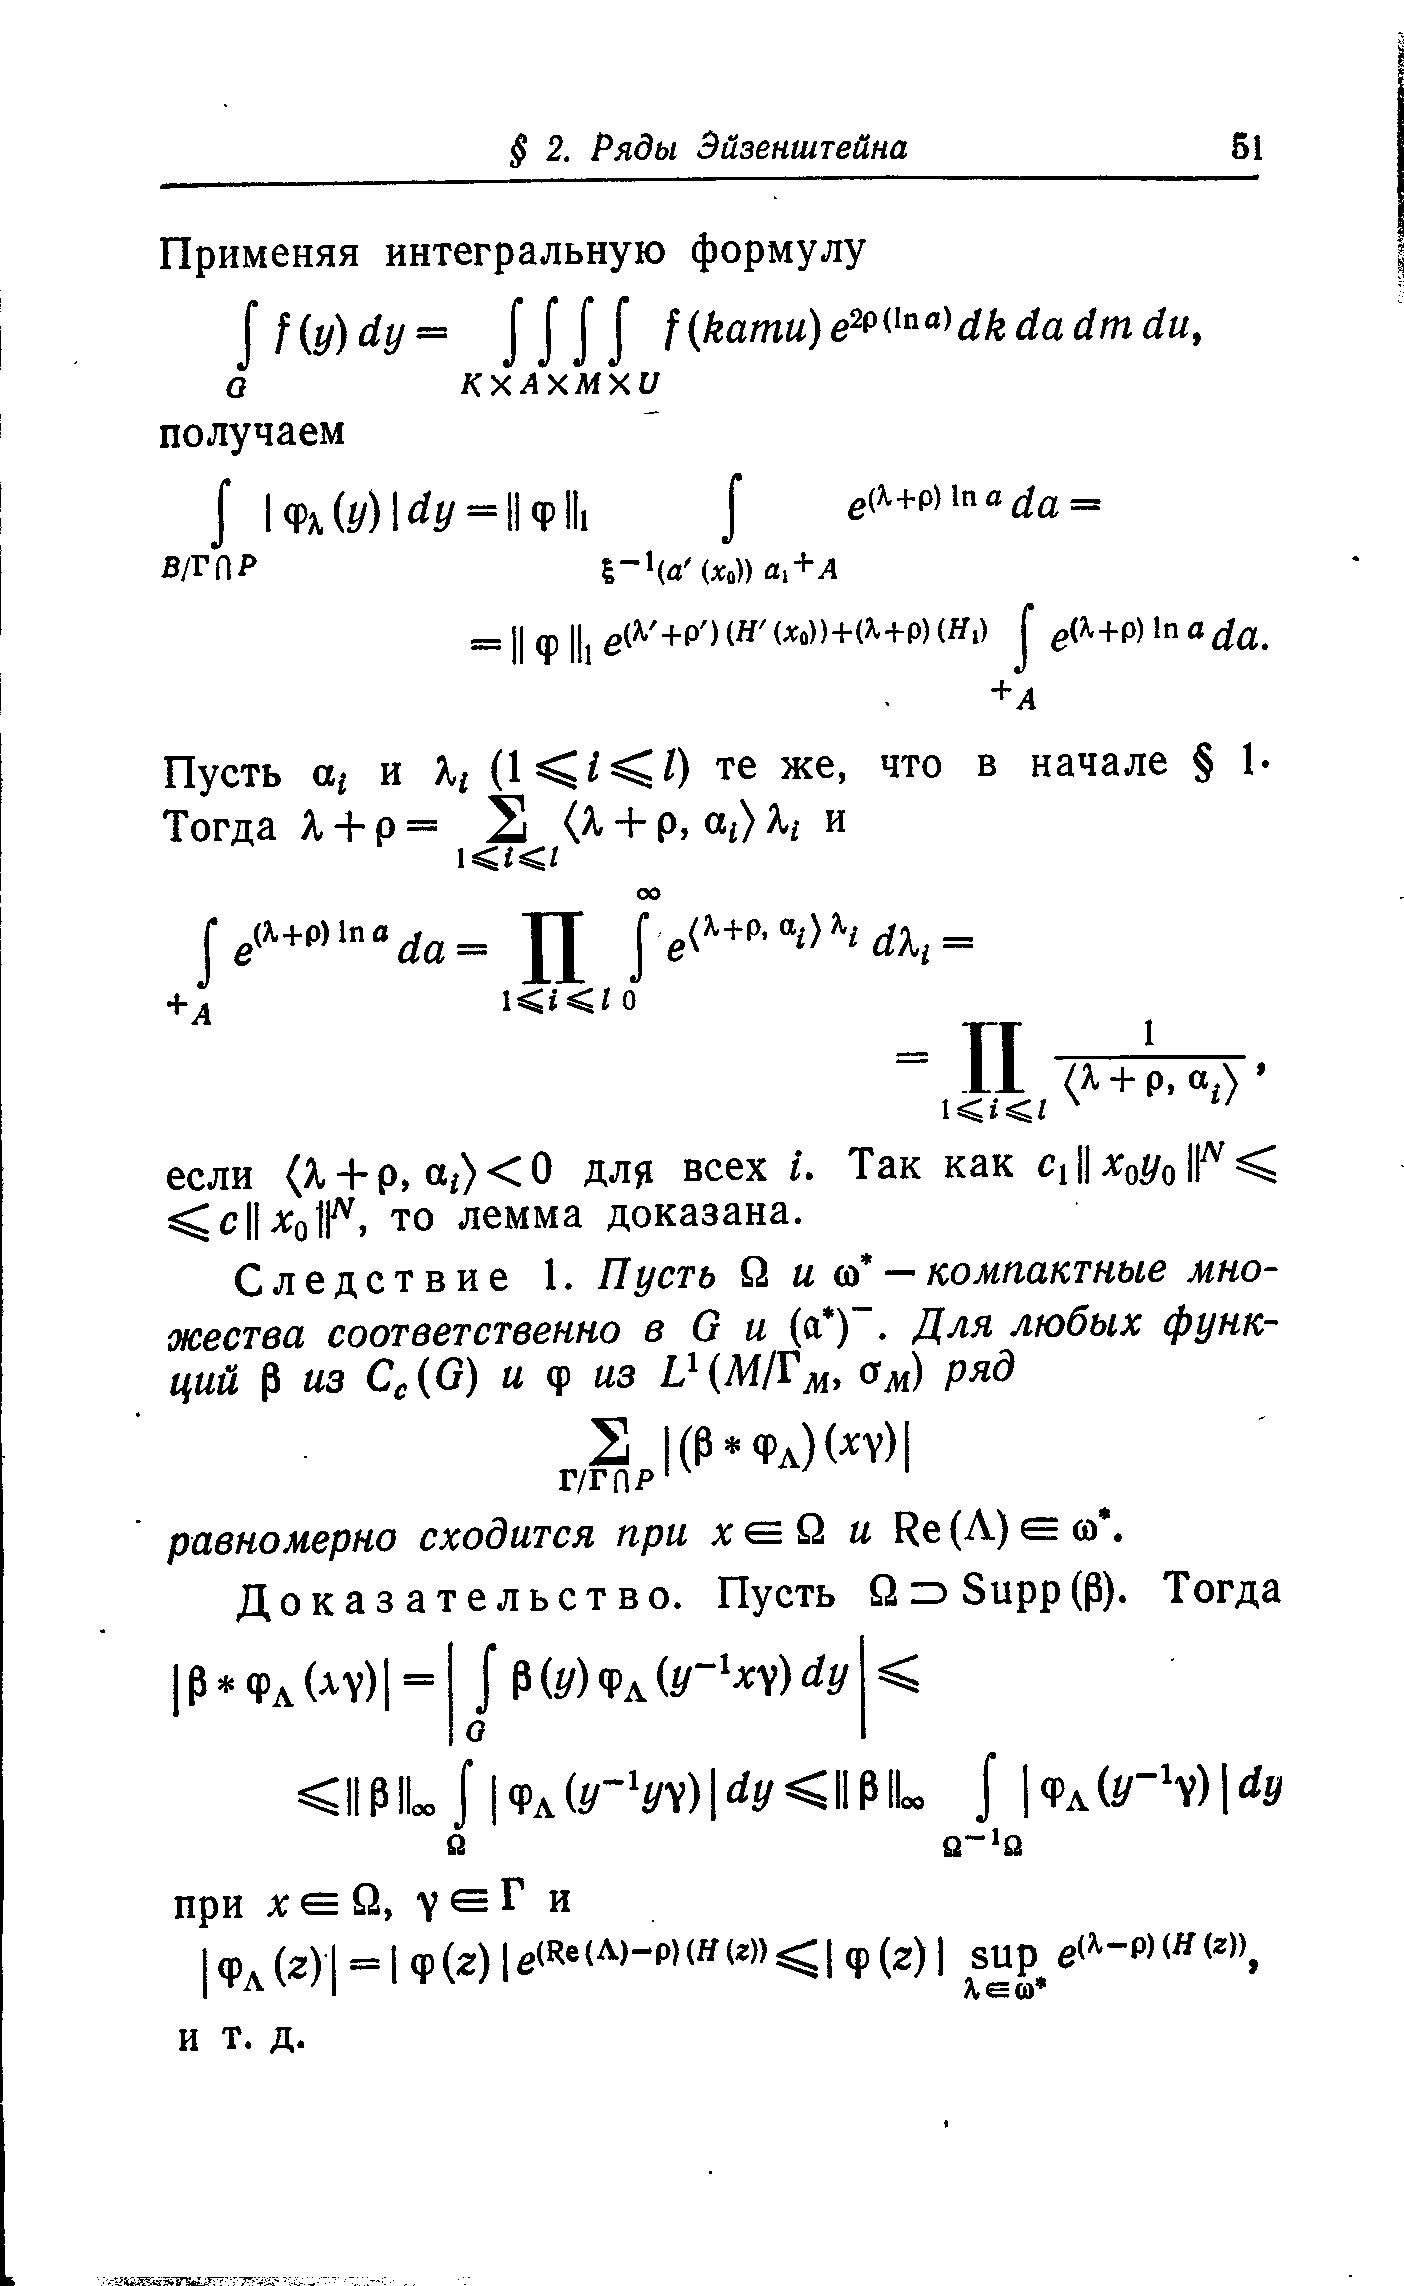 § 2. Ряды Эйзенштейна 51
Применяя интегральную формулу
∫_G f(y) dy = ∫∫∫∫_{K×A×M×U} f(kamu) e^{2ρ(ln a)} dk da dm du,
получаем
∫_{B/Γ∩P} |φ_λ(y)| dy = ‖φ‖₁ ∫_{ξ^{-1}(a'(x₀)) a₁ ⁺A} e^{(λ+ρ) ln a} da =
= ‖φ‖₁ e^{(λ'+ρ')(H'(x₀))+(λ+ρ)(H₁)} ∫_{⁺A} e^{(λ+ρ) ln a} da.
Пусть α_i и λ_i (1⩽i⩽l) те же, что в начале § 1.
Тогда λ+ρ = Σ_{1⩽i⩽l} ⟨λ+ρ, α_i⟩ λ_i и
∫_{⁺A} e^{(λ+ρ) ln a} da = ∏_{1⩽i⩽l} ∫_0^∞ e^{⟨λ+ρ, α_i⟩ λ_i} dλ_i =
= ∏_{1⩽i⩽l} 1/⟨λ+ρ, α_i⟩,
если ⟨λ+ρ, α_i⟩<0 для всех i. Так как c₁‖x₀y₀‖^N ⩽
⩽ c‖x₀‖^N, то лемма доказана.
Следствие 1. Пусть Ω и ω* — компактные мно-
жества соответственно в G и (a*)⁻. Для любых функ-
ций β из C_c(G) и φ из L¹(M/Γ_M, σ_M) ряд
Σ_{Γ/Γ∩P} |(β * φ_Λ)(xγ)|
равномерно сходится при x∈Ω и Re(Λ)∈ω*.
Доказательство. Пусть Ω⊃Supp(β). Тогда
|β * φ_Λ(xγ)| = |∫_G β(y) φ_Λ(y⁻¹xγ) dy| ⩽
⩽ ‖β‖_∞ ∫_Ω |φ_Λ(y⁻¹yγ)| dy ⩽ ‖β‖_∞ ∫_{Ω⁻¹Ω} |φ_Λ(y⁻¹γ)| dy
при x∈Ω, γ∈Γ и
|φ_Λ(z)| = |φ(z)| e^{(Re(Λ)−ρ)(H(z))} ⩽ |φ(z)| sup_{λ∈ω*} e^{(λ−ρ)(H(z))},
и т. д.